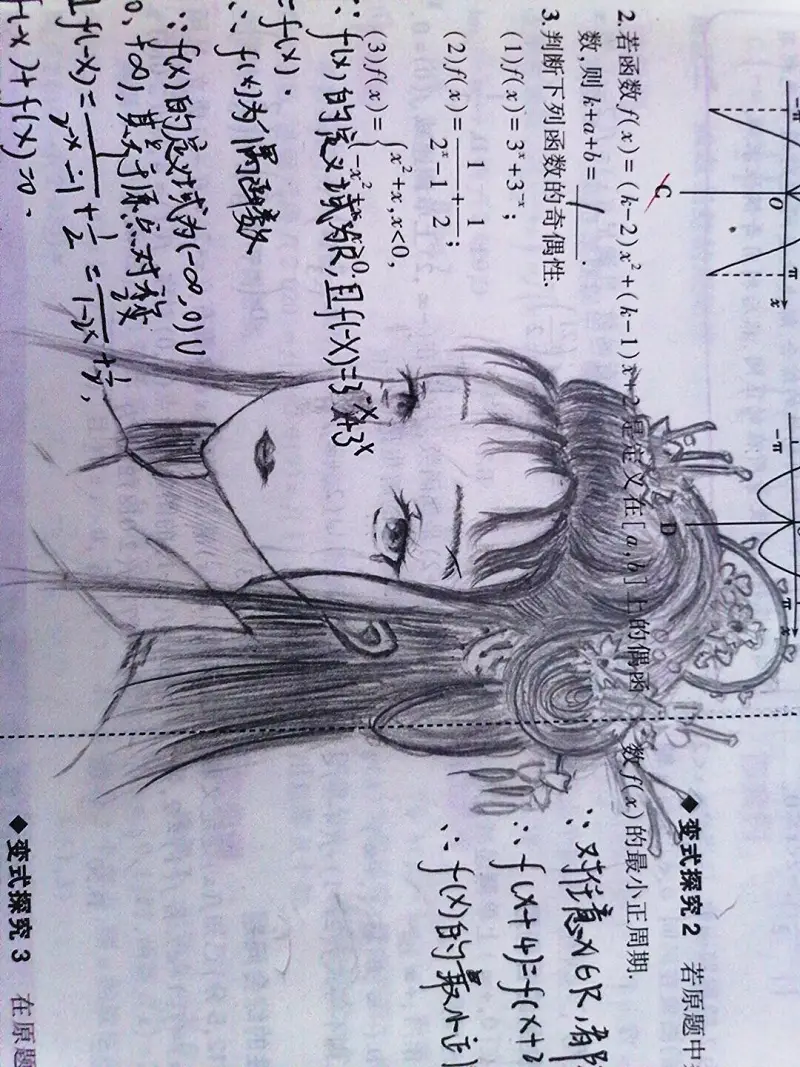 -π
O
x
C
-π
x
D
2. 若函数f(x)=(k-2)x²+(k-1)x+2是定义在[a,b]上的偶函
数,则k+a+b=
3. 判断下列函数的奇偶性.
(1)f(x)=3ˣ+3⁻ˣ;
(2)f(x)=1/(2ˣ-1)+1/2;
(3)f(x)={x²+x,x<0,
∵ f(x)的定义域为R,且f(-x)=3⁻ˣ+3ˣ
=f(x).
∴ f(x)为偶函数
∵ f(x)的定义域为(-∞,0)∪
0,+∞),其关于原点对称
f(-x)=1/(2⁻ˣ-1)+1/2=
f(-x)+f(x)=0.
◆变式探究2 若原题中
数f(x)的最小正周期.
∵ 对任意x∈R,有
∴ f(x+4)=f(x+2
∴ f(x)的最小正
◆变式探究3 在原题